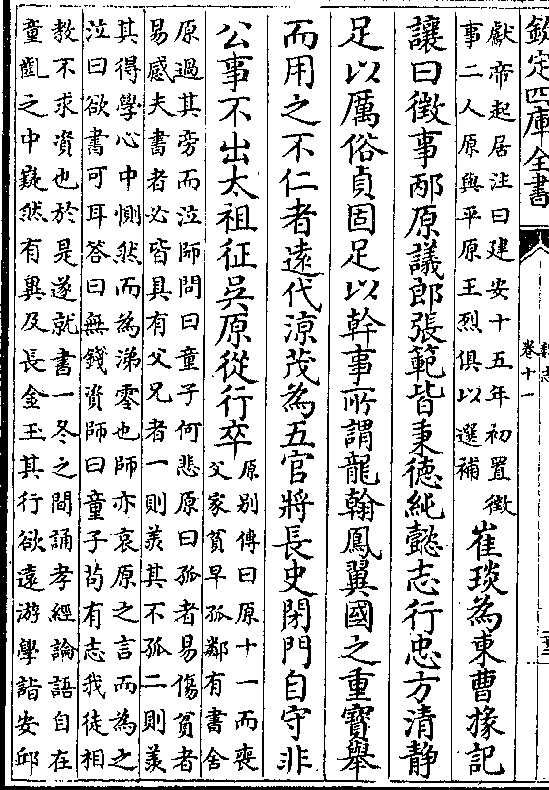 欽定四庫全書
魏志
卷十一
獻帝起居注曰建安十五年初置徵
事二人原與平原王烈俱以選補
崔琰為東曹掾記
讓曰徵事邴原議郎張範皆秉德純懿志行忠方清靜
足以厲俗貞固足以幹事所謂龍翰鳳翼國之重寳舉
而用之不仁者遠代涼茂為五官將長史閉門自守非
公事不出太祖征吳原從行卒
原别傳曰原十一而喪
父家貧早孤鄰有書舍
原過其旁而泣師問曰童子何悲原曰孤者易傷貧者
易感夫書者必皆具有父兄者一則羨其不孤二則羨
其得學心中惻然而為涕零也師亦哀原之言而為之
泣曰欲書可耳答曰無錢資師曰童子苟有志我徒相
教不求資也於是遂就書一冬之間誦孝經論語自在
童齓之中嶷然有異及長金玉其行欲逺游學詣安邱